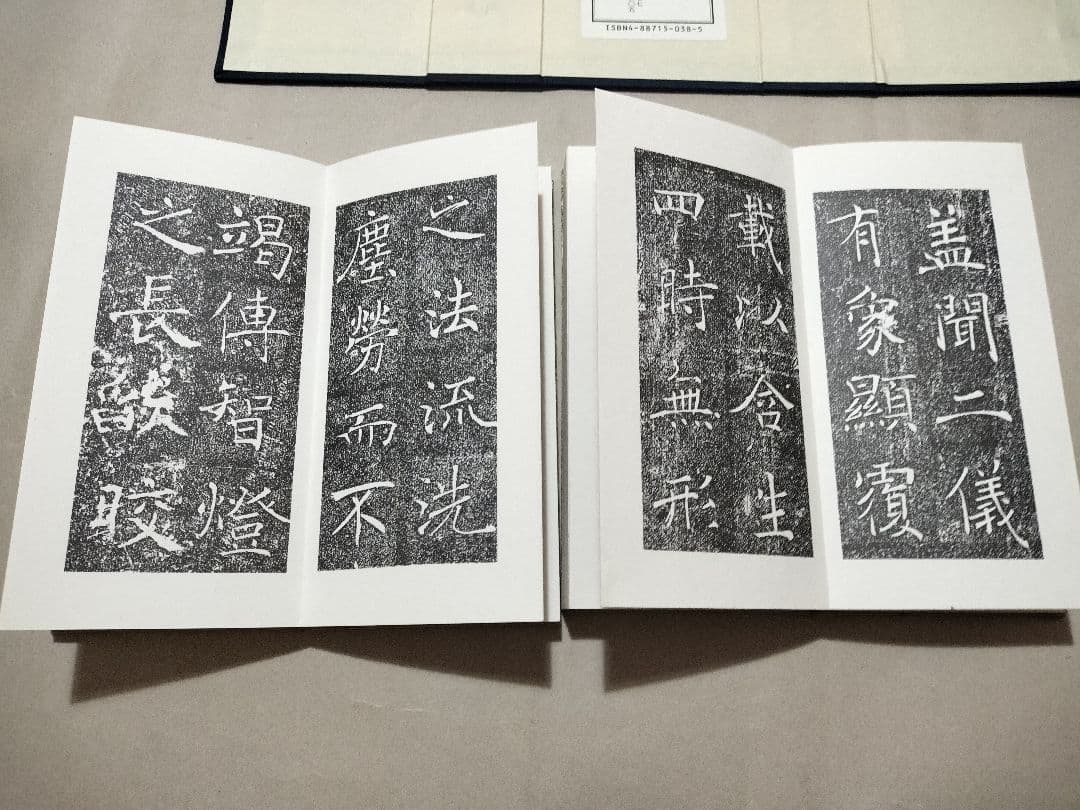 ISBN4-88715-038-5
盖聞二儀
有象顯覆
載以含生
四時無形
之法流洗
塵勞而不
竭傳智燈
之長燄皎